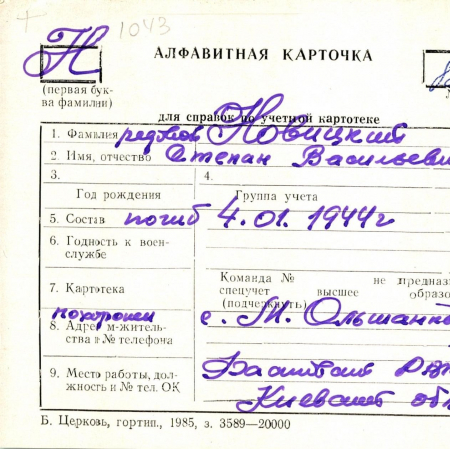 1043
Н
АЛФАВИТНАЯ КАРТОЧКА
(первая бук-
ва фамилии)
для справок по учетной картотеке
1. Фамилия рядовой Новицкий
2. Имя, отчество Степан Васильеви
3. 4.
Год рождения Группа учета
5. Состав погиб 4.01.1944г
6. Годность к воен-
службе
Команда № не предназ
7. Картотека спецучет высшее образо
(подчеркнуть)
похоронен с. М. Ольшанк
8. Адрес м-житель-
ства и № телефона
9. Место работы, дол-
жность и № тел. ОК
Киевской об
Б. Церковь, гортип., 1985, з. 3589—20000